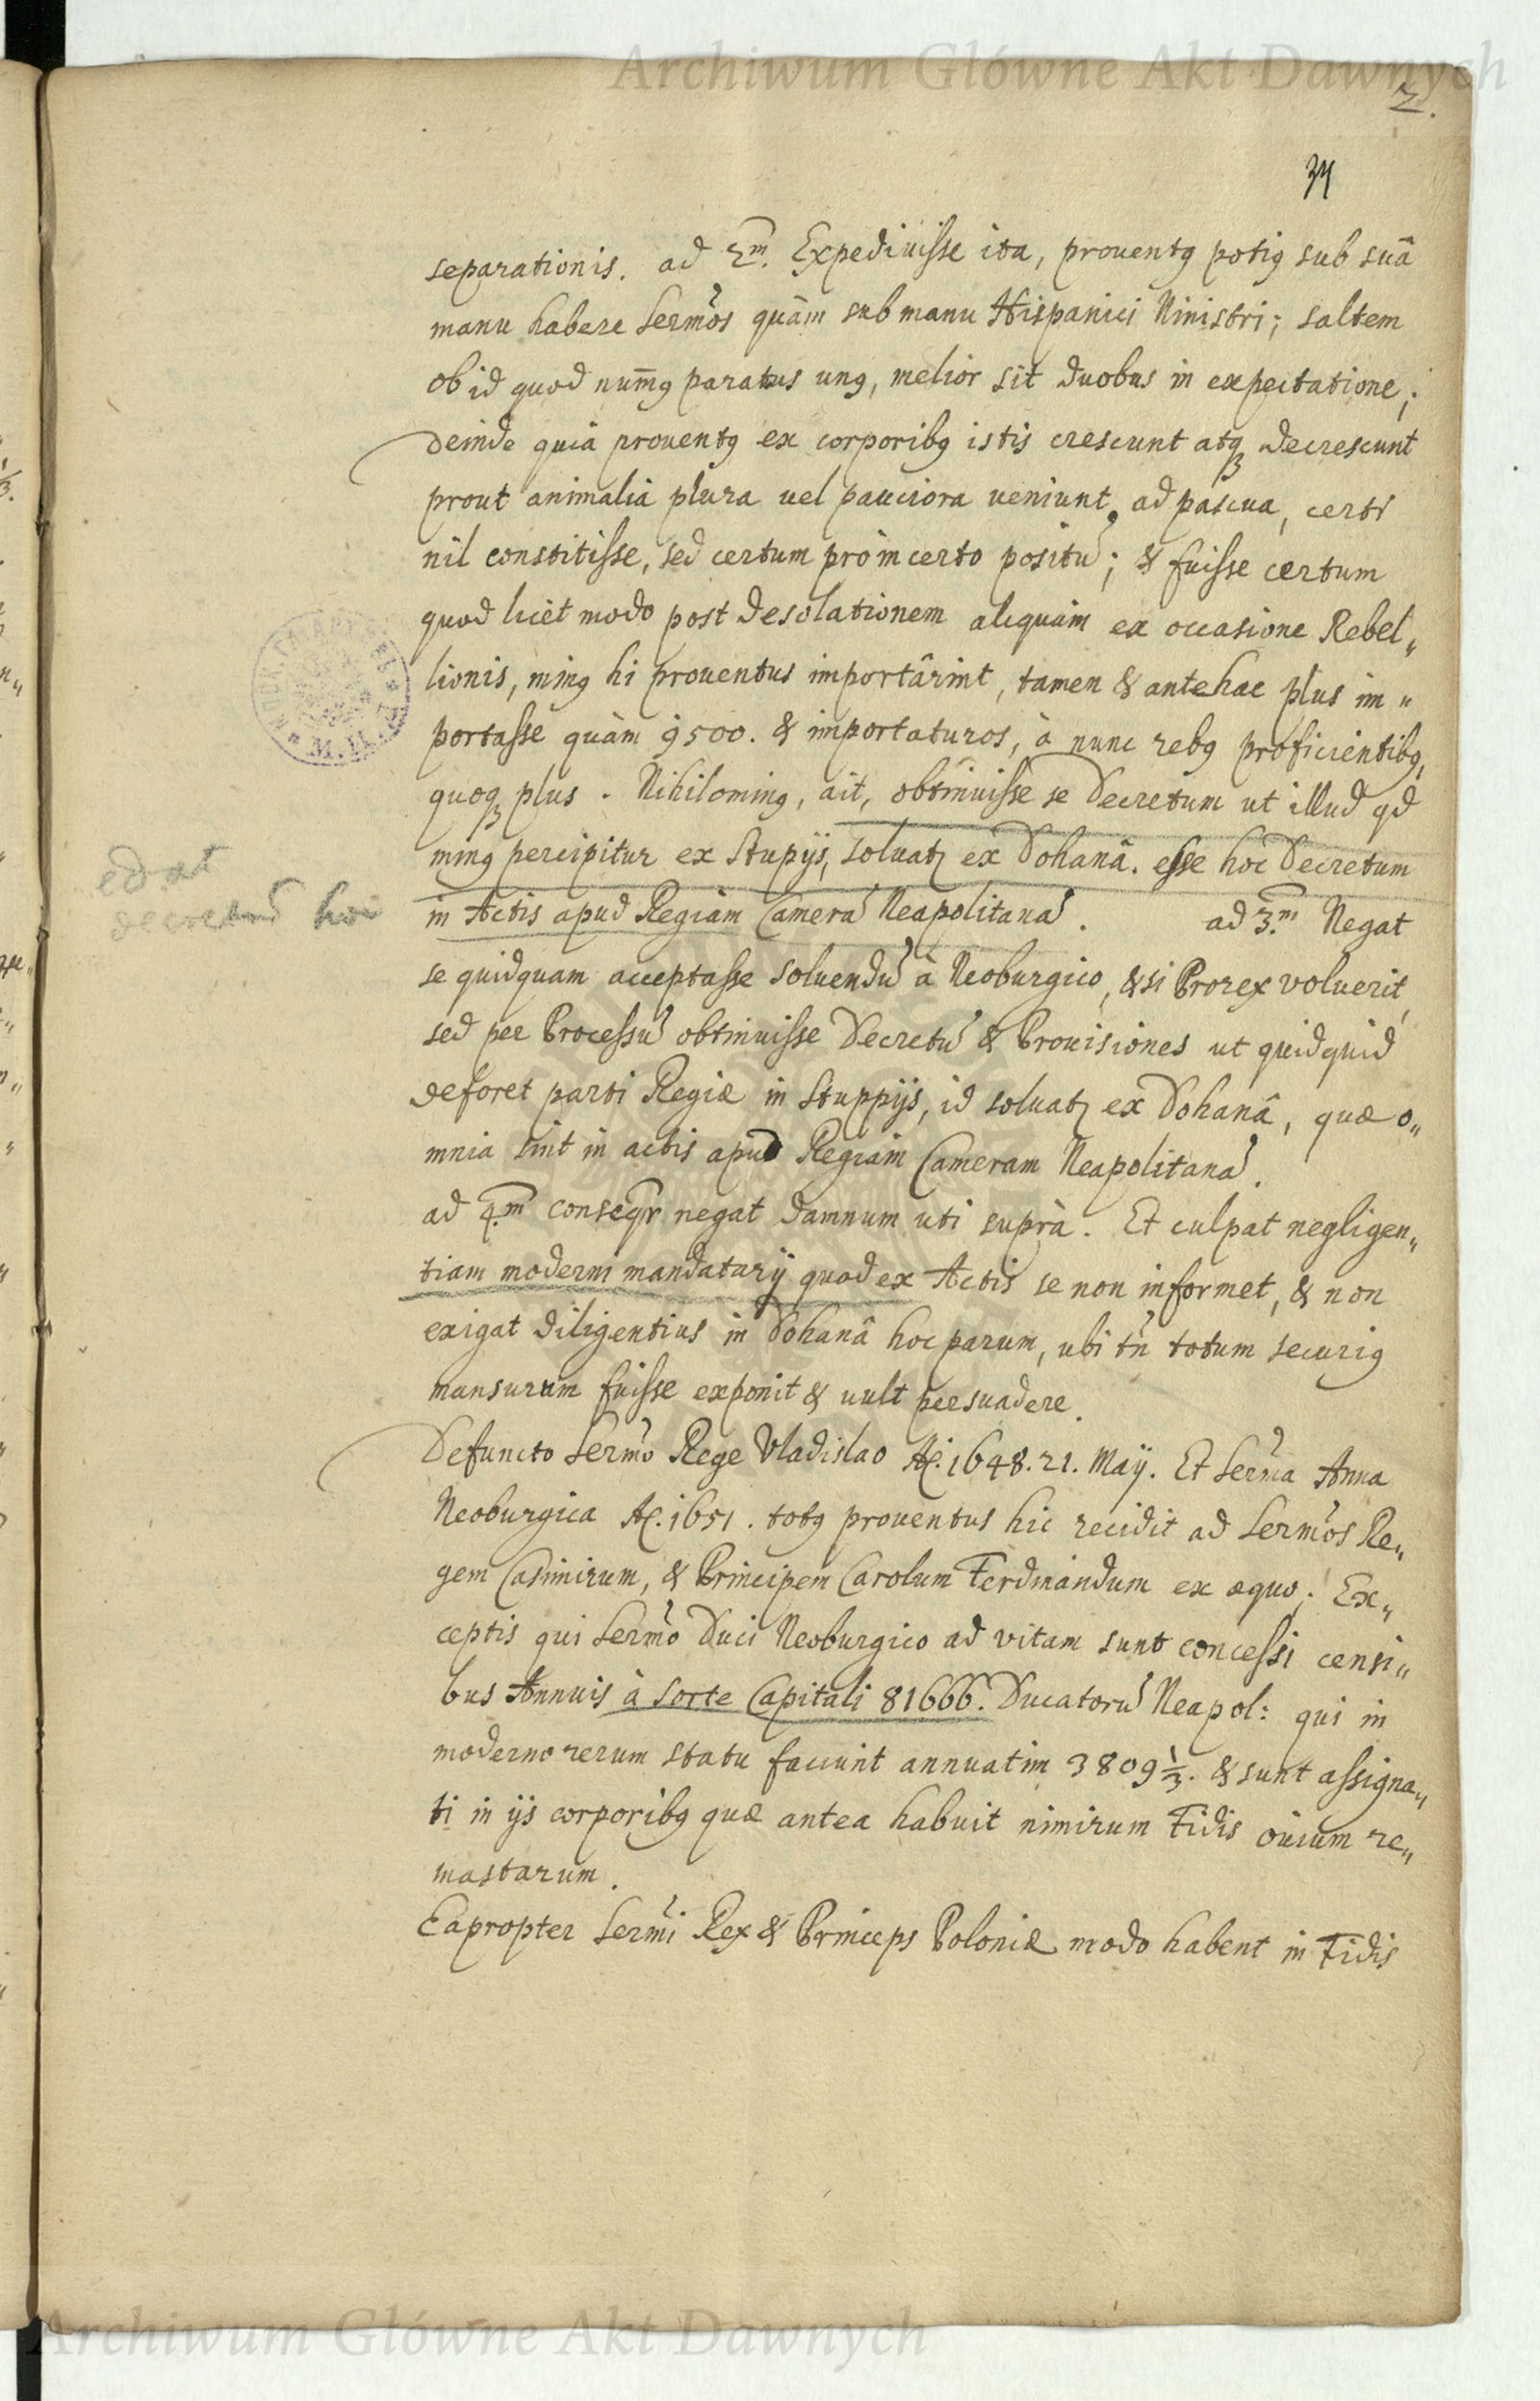 Archiwum Główne Akt Dawnych
2.
34
separationis. ad 2.m Expediuisse ita, prouentq potiq sub suâ
manu habere Sermos quàm sub manu Hispanici Ministri; saltem
ob id quod numq paratus unq, melior sit duobus in expectatione;
deinde quia prouentq ex corporibq istis crescunt atq decrescunt
prout animalia plura uel pauciora ueniunt ad pascua, certi
nil constitisse, sed certum pro incerto positu; & fuisse certum
quod licet modo post desolationem aliquam ex occasione Rebel„
lionis, minq hi prouentus importârint, tamen & antehac plus im„
portasse quàm 9500. & importaturos, à nunc rebq proficientibq,
quoq plus. Nihilominq, ait, obtinuisse se Decretum ut illud qd
minq percipitur ex Stupijs, soluatr ex Dohanâ. esse hoc Decretum
edat
decretum hoc
in Actis apud Regiam Camera Neapolitana. ad 3.m Negat
se quidquam acceptasse soluendu à Neoburgico, & si Prorex voluerit,
sed per Processu obtinuisse Decretu & Prouisiones ut quidquid
deforet parti Regiæ in Stuppijs, id soluatr ex Dohanâ, quæ o„
mnia sint in actis apud Regiam Cameram Neapolitana.
ad 4.m conseqr negat damnum uti suprà. Et culpat negligen„
tiam moderni mandatarij quod ex Actis se non informet, & non
exigat diligentius in Dohanâ hoc parum, ubi tn totum securiq
mansurum fuisse exponit & uult persuadere.
Defuncto Sermo Rege Vladislao Aº. 1648. 21. Maij. Et Serma Anna
Neoburgica Aº. 1651. totq prouentus hic recidit ad Sermos Re„
gem Casimirum, & Principem Carolum Ferdinandum ex æquo; Ex„
ceptis qui Sermo Duci Neoburgico ad vitam sunt concessi censi„
bus Annuis à sorte Capitali 81666. Ducatoru Neapol: qui in
moderno rerum statu faciunt annuatim 3809 1/3. & sunt assigna„
ti in ijs corporibq quæ antea habuit nimirum Fidis ouium re„
mastarum.
Eapropter Sermi Rex & Princeps Poloniæ modo habent in Fidis
Archiwum Główne Akt Dawnych